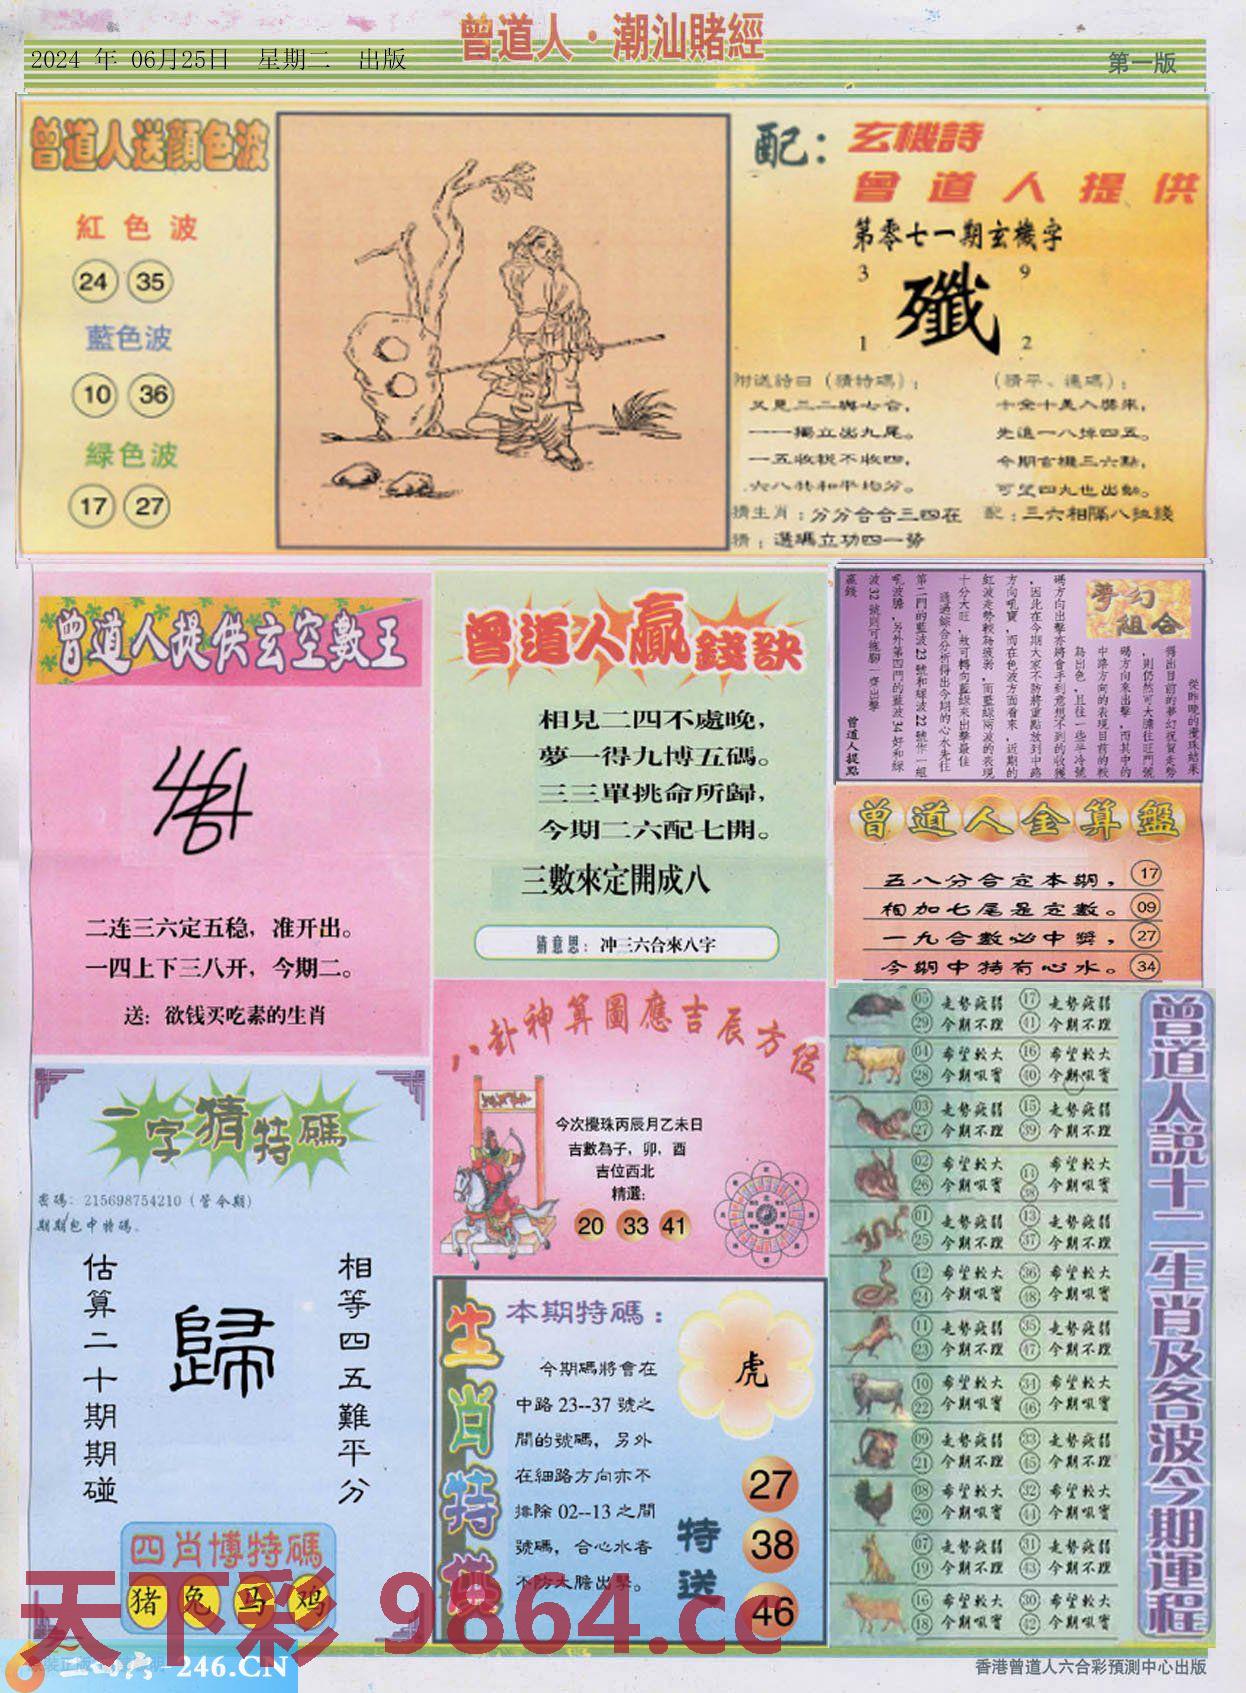 曾道人·潮汕賭經
2024 年 06月25日 星期二 出版
第一版
曾道人送顔色波
紅色波
24 35
藍色波
10 36
綠色波
17 27
配：玄機詩
曾道人提供
第零七一期玄機字
3 9
殲
1 2
附送詩曰（猜特碼）：
又見三二與七合，
一一獨立出九尾。
一五收稅不收四，
六八共和平均分。
（猜平、連碼）：
十全十美入獎來，
先進一八掉四五。
今期玄機三六點，
可望四九也出動。
猜生肖：分分合合三四在
配：三六相隔八組錢
猜：選碼立功四一勢
曾道人提供玄空數王
二连三六定五稳，准开出。
一四上下三八开，今期二。
送：欲钱买吃素的生肖
曾道人贏錢訣
相見二四不處晚，
夢一得九博五碼。
三三單挑命所歸，
今期二六配七開。
三數來定開成八
猜意思：冲三六合來八字
夢幻組合
從昨晚的攪珠結果
得出目前的夢幻祝賀走勢
，則仍然可大膽往旺門號
碼方向來出擊，而其中的
中路方向的表現目前的較
為出色，且往一些半冷號
碼方向出擊亦將會手到意想不到的收獲
，因此在今期大家不防將重點放到中路
方向吼寶，而在色波方面看來，近期的
紅波走勢較為疲弱，而藍綠兩波的表現
十分大旺，故可轉向藍綠來出擊最佳
通過綜合分析得出今期的心水先往
第二門的藍波23號和綠波22號作一組
吼波膽，另外第四門的藍波34好和綠
波32號則可拖腳一齊出擊
贏錢
曾道人提點
曾道人金算盤
五八分合定本期， 17
相加七尾是定數。 09
一九合數必中獎， 27
今期中特有心水。 34
一字猜特碼
密碼：215698754210（管今期）
期期包中特碼。
相等四五難平分
歸
估算二十期期碰
四肖博特碼
猪 兔 马 鸡
八卦神算圖應吉辰方位
今次攪珠丙辰月乙未日
吉數為子，卯，酉
吉位西北
精選：
20 33 41
生肖特供
本期特碼：
今期碼將會在
中路 23--37 號之
間的號碼，另外
在細路方向亦不
排除 02--13 之間
號碼，合心水者
不防大膽出擊。
虎
特送
27
38
46
曾道人説十二生肖及各波今期運程
05 走勢疲弱 17 走勢疲弱
29 今期不理 41 今期不理
04 希望較大 16 希望較大
28 今期吼寶 40 今期吼寶
03 走勢疲弱 15 走勢疲弱
27 今期不理 39 今期不理
02 希望較大 14 希望較大
26 今期吼寶 38 今期吼寶
01 走勢疲弱 13 走勢疲弱
25 今期不理 37 今期不理
12 希望較大 36 希望較大
24 今期吼寶 48 今期吼寶
11 走勢疲弱 35 走勢疲弱
23 今期不理 47 今期不理
10 希望較大 34 希望較大
22 今期吼寶 46 今期吼寶
09 走勢疲弱 33 走勢疲弱
21 今期不理 45 今期不理
08 希望較大 32 希望較大
20 今期吼寶 44 今期吼寶
07 走勢疲弱 31 走勢疲弱
19 今期不理 43 今期不理
16 希望較大 30 希望較大
18 今期吼寶 42 今期吼寶
天下彩 9864.cc
二四六-246.CN
香港曾道人六合彩預測中心出版